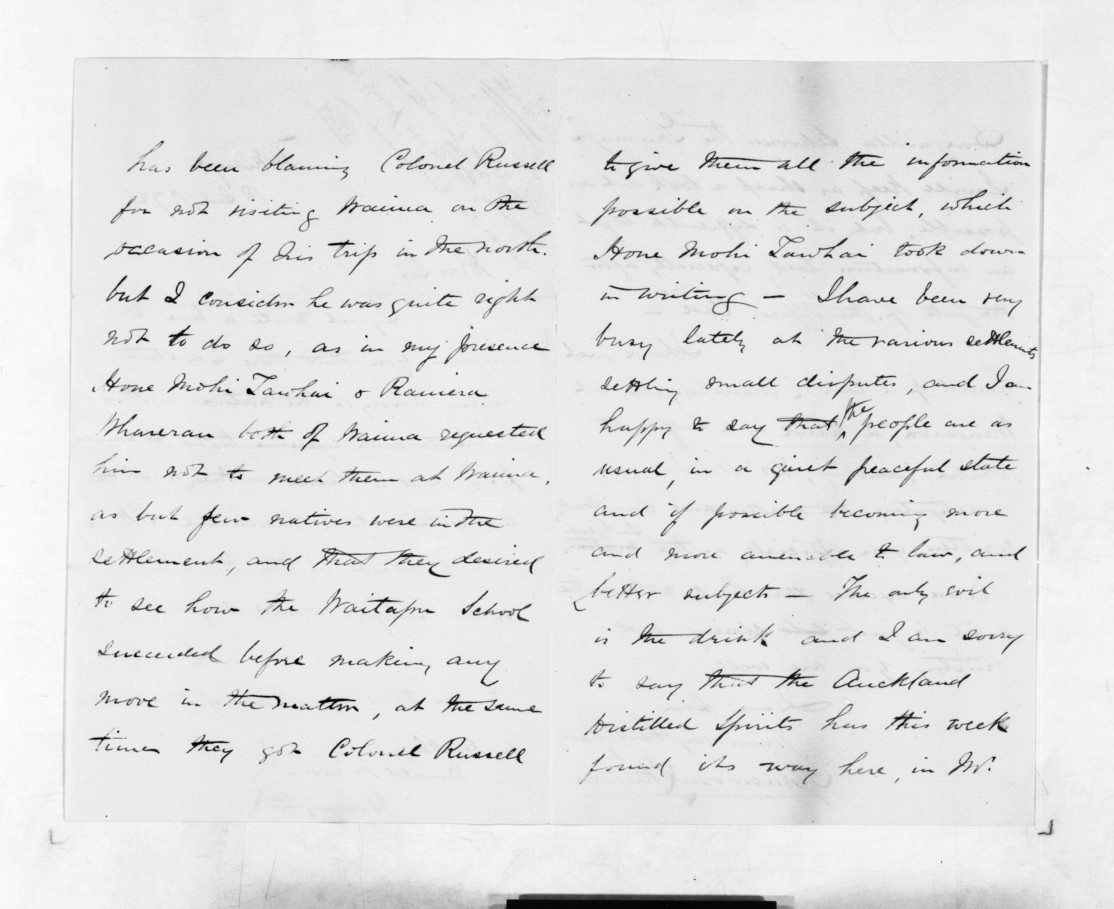 has been blaming Colonel Russell
for not visiting Waima on the
occasion of his trip in the north.
but I consider he was quite right
not to do so, as in my presence
Hone Mohi Tawhai & Raniera
Wharerau both of Waima requested
him not to meet them at Waima,
as but few natives were in the
settlement, and that they desired
to see how the Waitapu School
succeeded before making any
move in the matter, at the same
time they got Colonel Russell
to give them all the information
possible on the subject, which
Hone Mohi Tawhai took down
in writing — I have been very
busy lately at the various settlements
settling small disputes, and I am
happy to say that the people are as
usual, in a quiet peaceful state
and if possible becoming more
and more amenable to law, and
better subjects — The only evil
is the drink and I am sorry
to say that the Auckland
Distilled Spirits has this week
found its way here, in Mr.